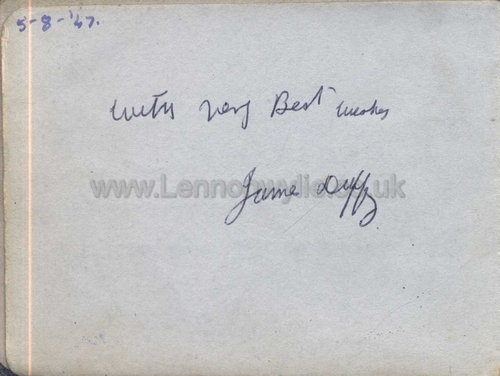 5-8-'47.
With very Best wishes
www.Lennonwylie.co.uk
Jame Duffy